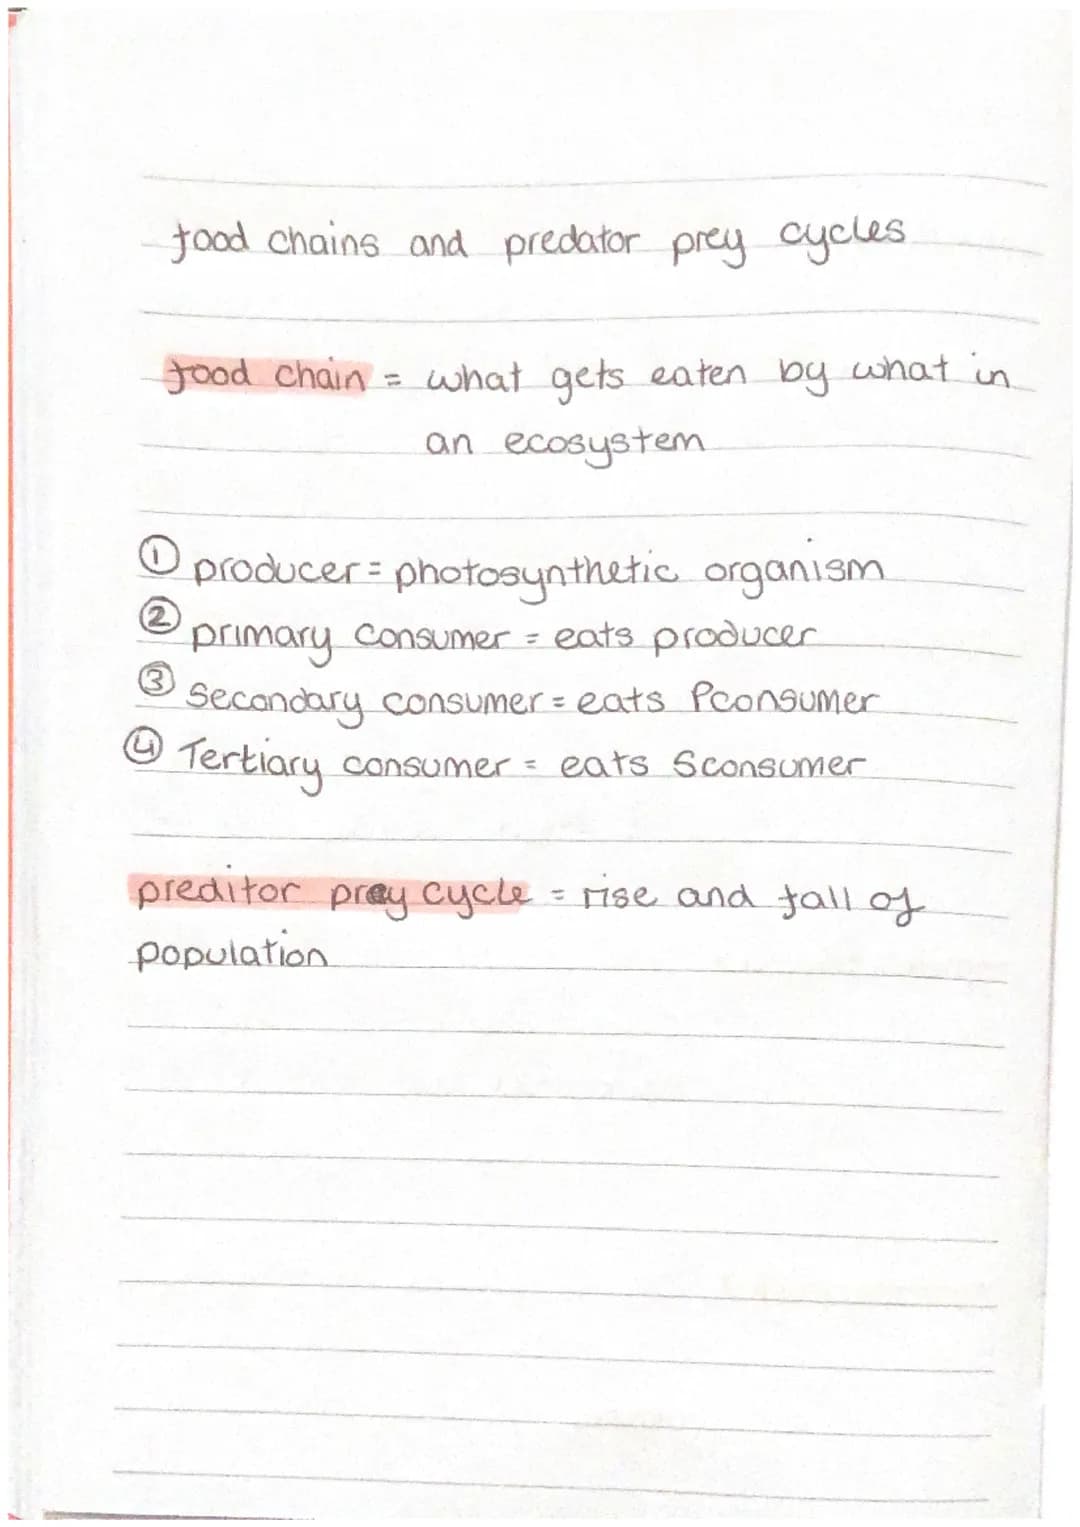 food chains and predator prey cycles
food chain = what gets eaten by what in
an ecosystem
① producer = photosynthetic organism
② primary consumer = eats producer
③ Secondary consumer = eats Pconsumer
④ Tertiary consumer = eats Sconsumer
preditor prey cycle = rise and fall of
population